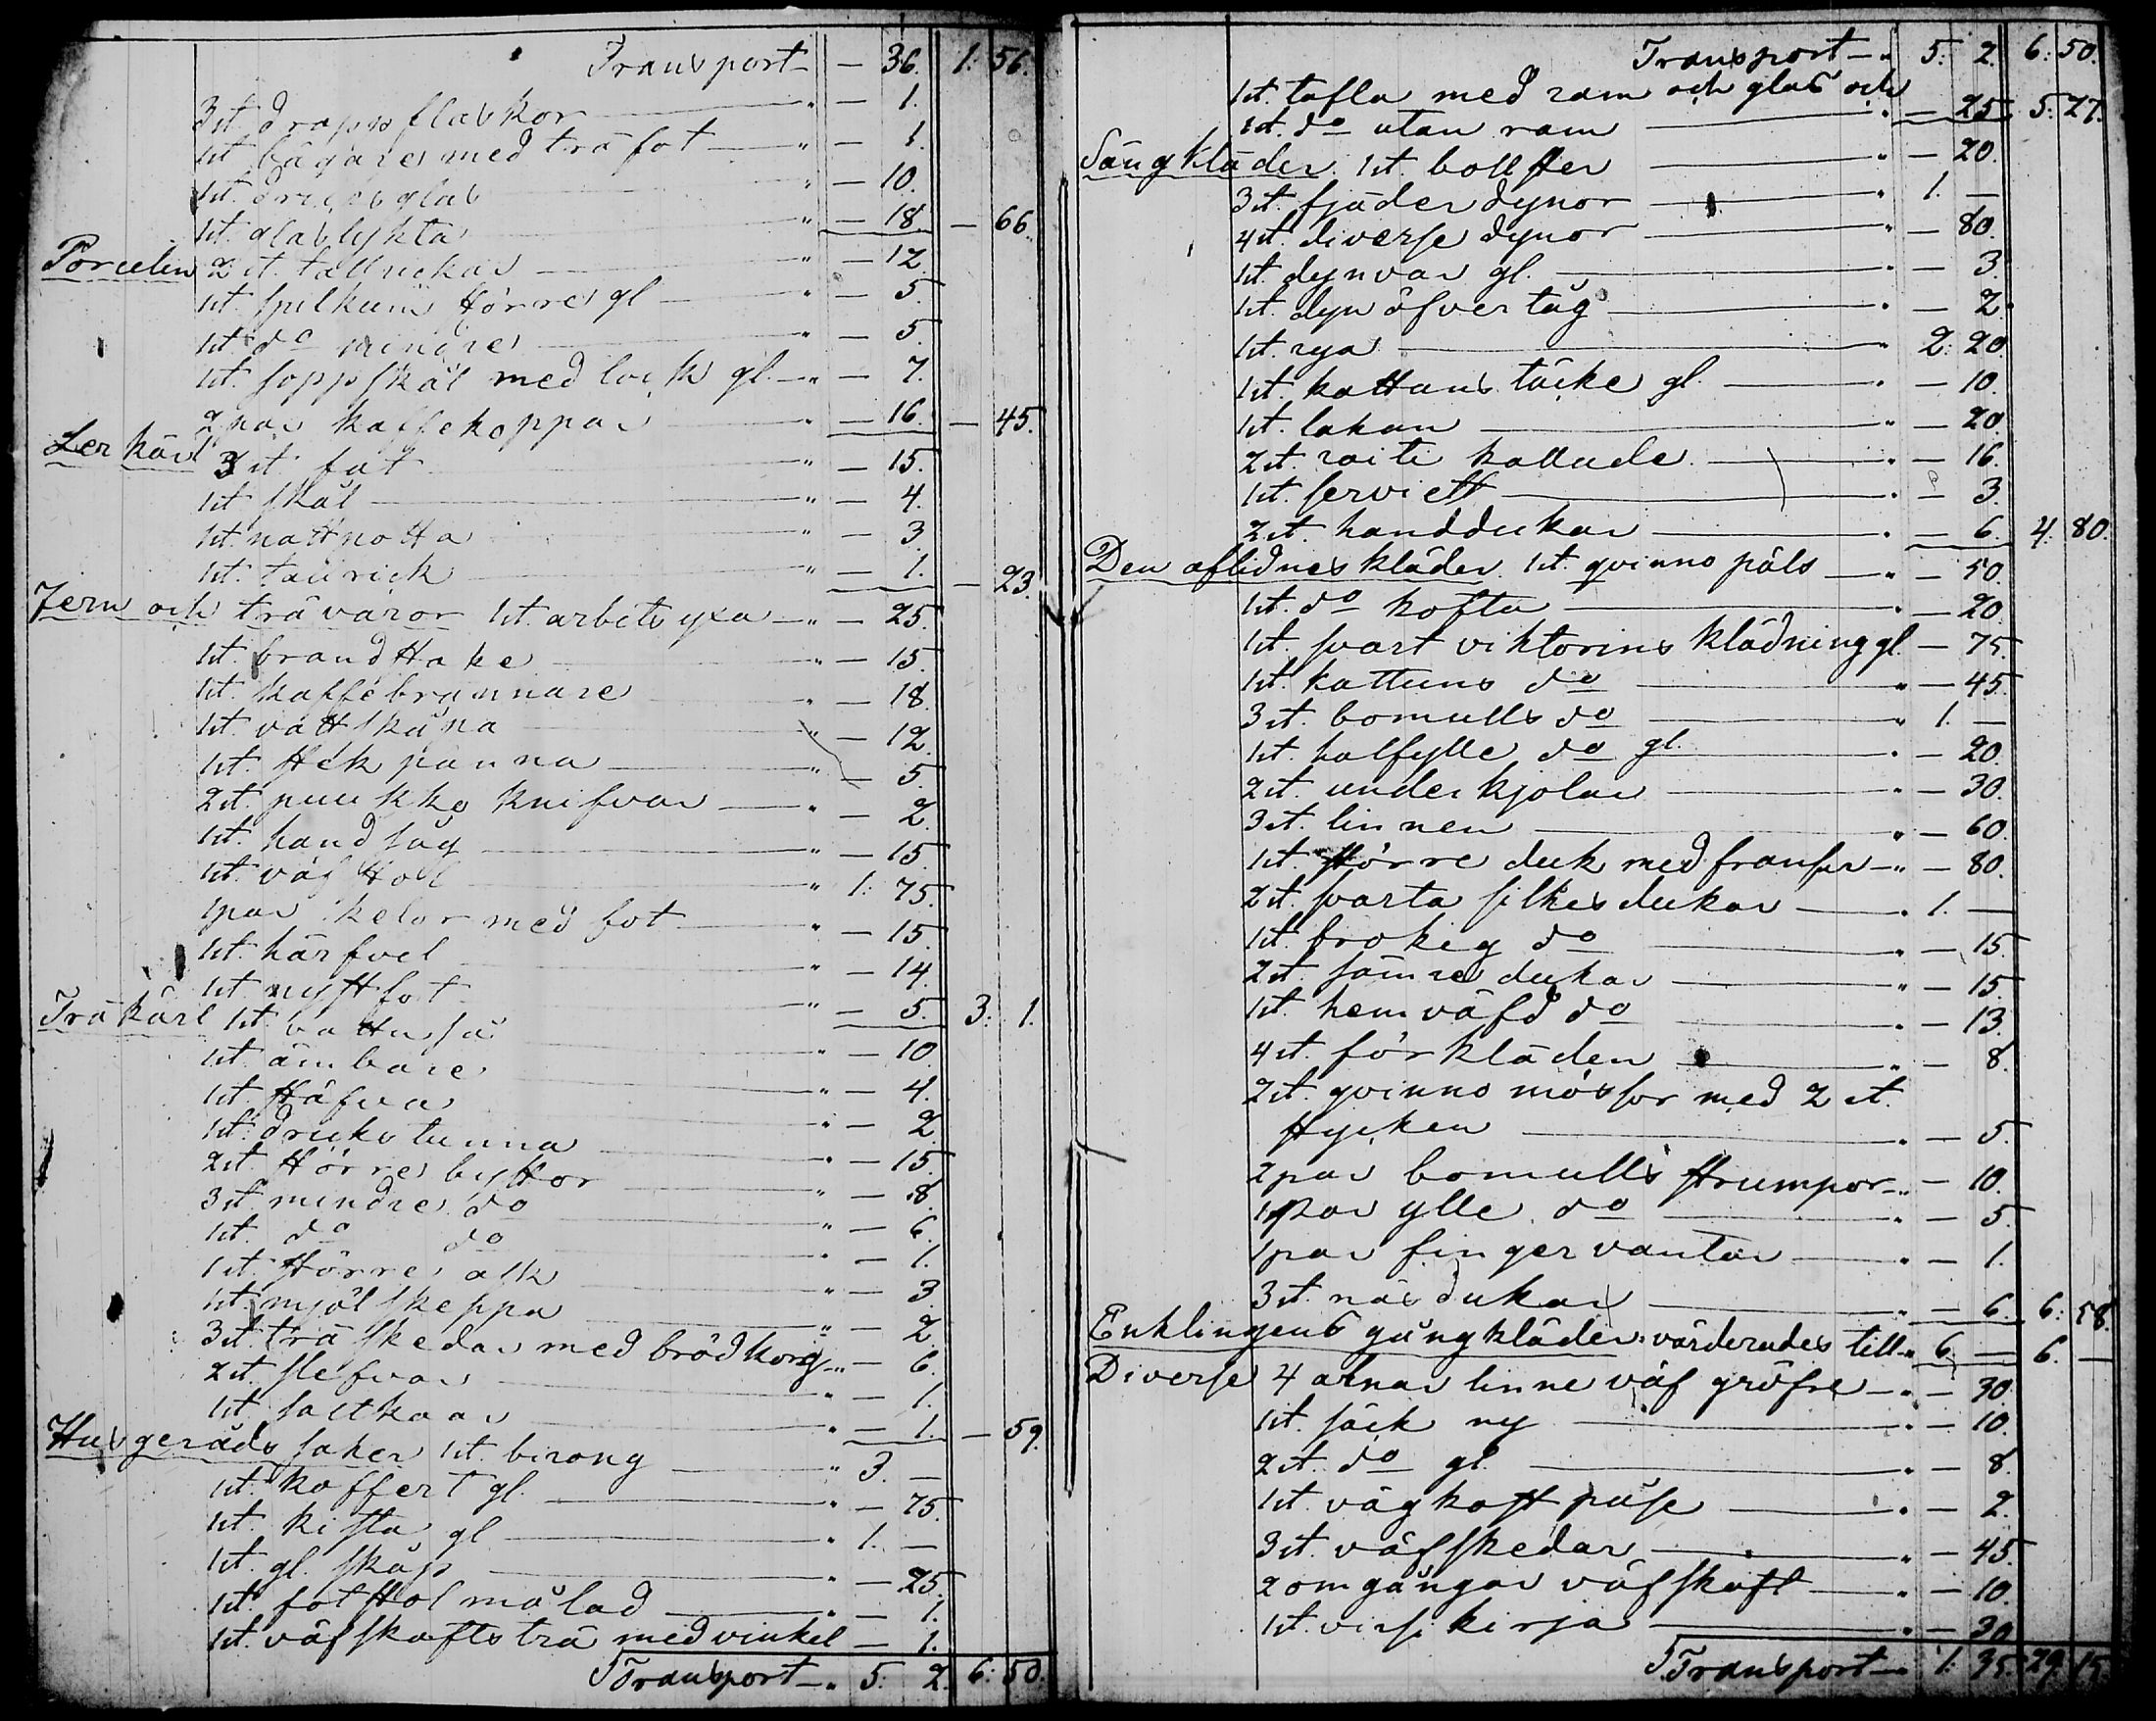 Transport — 36. 1: 56.
3 st. dropps flaskor — 1.
1 st. bägare med träfot — 1.
1 st. dricksglas — 10.
1 st. glaslykta — 18. — 66.
Porcelin 2 st. tallrickar — 12.
1 st. spilkum större gl — 5.
1 st. do mindre — 5.
1 st. soppskål med lock gl. — 7.
2 par kaffekoppar — 16. — 45.
Lerkärl 3 st. fat — 15.
1 st. skål — 4.
1 st. nattpotta — 3
1 st. tallrick — 1. — 23.
Jern och trävaror 1 st. arbets yxa — 25.
1 st. brandstake — 15.
1 st. kaffebrännare — 18.
1 st. vattskåpa — 12.
1 st. stekpanna — 5.
2 st. puukko knifvar — 2.
1 st. handsåg — 15.
1 st. väfstol 1: 75.
1 par kelor med fot — 15.
1 st. härfvel — 14.
1 st. nystfot — 5. 3: 1.
Träkärl 1 st. vattuså — 10
1 st. ämbare — 4.
1 st. stäfva — 2
1 st. drickstunna — 15.
2 st. större byttor — 8.
3 st. mindre do — 6.
1 st. do do — 1.
1 st. större ask — 3
1 st. mjölskeppa — 2.
3 st. träskedar med brödkorg — 6.
2 st. slefvar — 1.
1 st. saltkaar — 1. — 59.
Husgeråds saker 1 st. birong 3. —
1 st. koffert gl. — 75.
1 st. kista gl 1. —
1 st. gl. skåp — 25.
1 st. fotstol målad — 1.
1 st. väfskaftsträ med vinkel — 1.
Transport 5: 2. 6: 50.
Transport 5: 2. 6: 50.
1 st. tafla med ram och glas och
1 st. do utan ram — 25 5: 27.
Sängkläder. 1 st. bolster — 20.
3 st. fjäder dynor 1. —
4 st. diverse dynor — 80.
1 st. dynvar gl. — 3.
1 st. dyn öfvertåg — 2.
1 st. rya 2: 20
1 st. kattuns täcke gl. — 10.
1 st. lakan — 20.
2 st. raiti kallade — 16.
1 st. serviett — 3.
2 st. handdukar — 6. 4: 80.
Den aflidnes kläder. 1 st. qvinno päls — 50.
1 st. do kofta — 20.
1 st. svart viktorins klädning gl — 75.
1 st. kattuns do — 45.
3 st. bomulls do 1. —
1 st. halfylle do gl. — 20.
2 st. underkjolar — 30.
3 st. linnen — 60.
1 st. större duk med fransar — 80.
2 st. svarta silkesdukar 1. —
1 st. brokig do — 15.
2 st. sämre dukar — 15.
1 st. hemväfd do — 13.
4 st. förkläden — 8.
2 st. qvinno mössor med 2 st.
stycken — 5.
2 par bomulls strumpor — 10.
1 par ylle do — 5.
1 par fingervantar — 1.
3 st. näsdukar — 6. 6: 58.
Enklingens gångkläder värderades till 6. — 6. —
Diverse 4 alnar linne väf gröfre — 30.
1 st. säck ny — 10.
2 st. do gl. — 8.
1 st. vägkost påse — 2.
3 st. väfskedar — 45.
2 omgångar väfskaft — 10.
1 st. virsikirja — 30
Transport 1: 35. 29 15